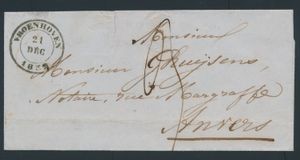 VROENHOVEN
21
DEC
Monsieur
Monsieur Ghuijsens,
Notaire, rue Margraffe
Anvers